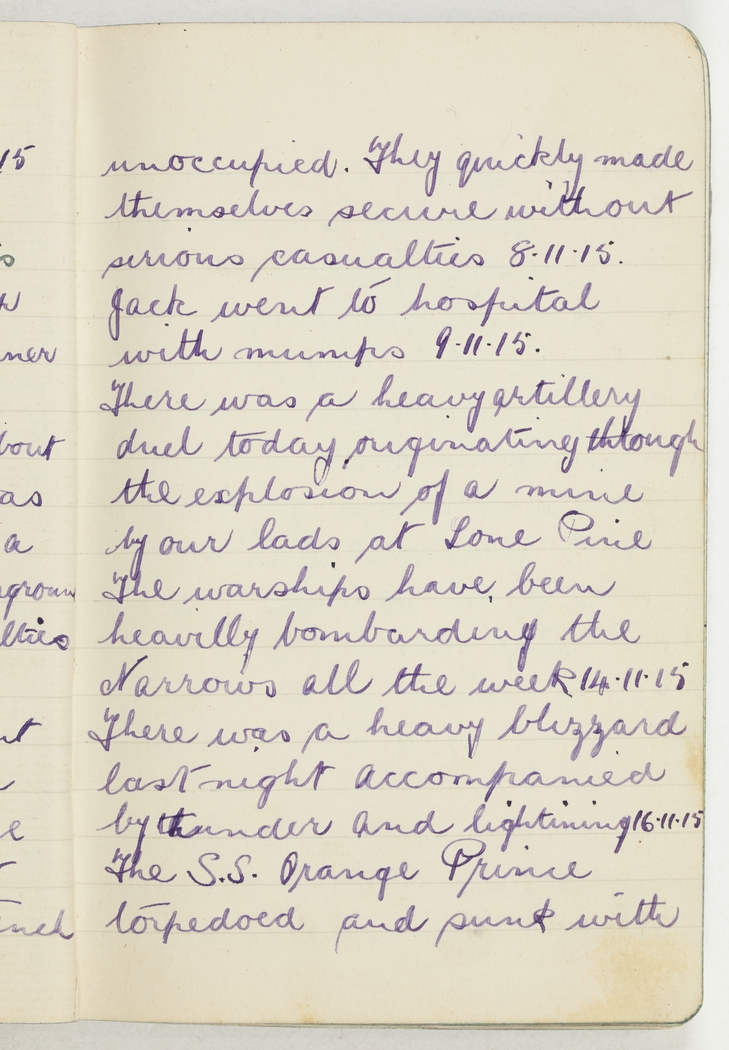 15
unoccupied. They quickly made
themselves secure without
s
serious casualties 8.11.15.
Jack went to hospital
ner
with mumps 9.11.15.
There was a heavy artillery
bout
duel today originating through
as
the explosion of a mine
a
by our lads at Lone Pine
ground
The warships have been
lties
heavilly bombarding the
Narrows all the week 14.11.15
There was a heavy blizzard
last night accompanied
e
by thunder and lightining 16.11.15
The S.S. Orange Prince
torpedoed and sunk with